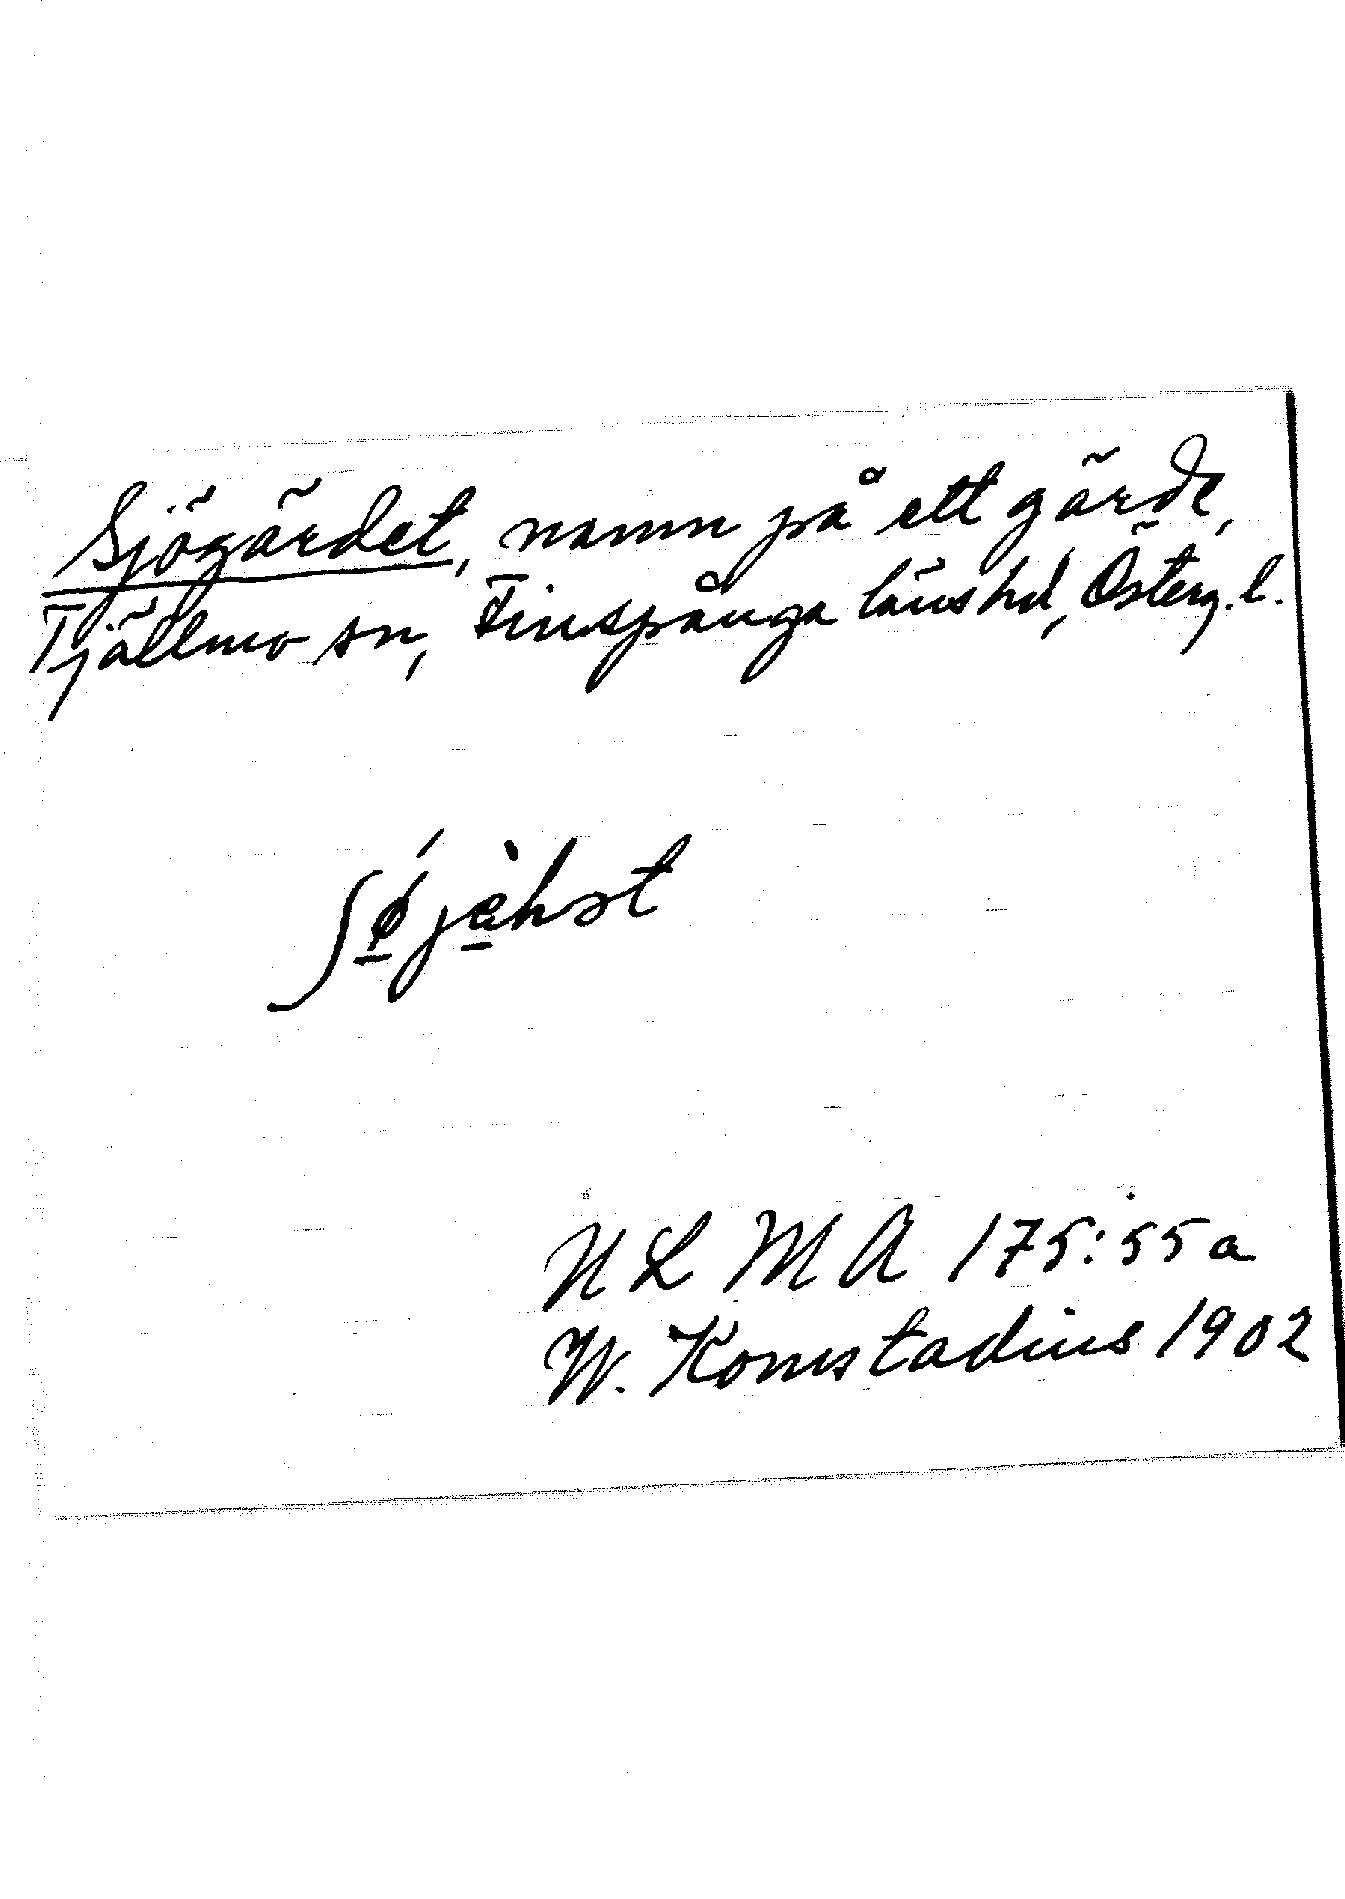 Sjögärdet, namn på ett gärde,
Tjällmo sn, Finspånga länshd, Österg. l.
N L M A 175:55 a
W. Komstadius 1902